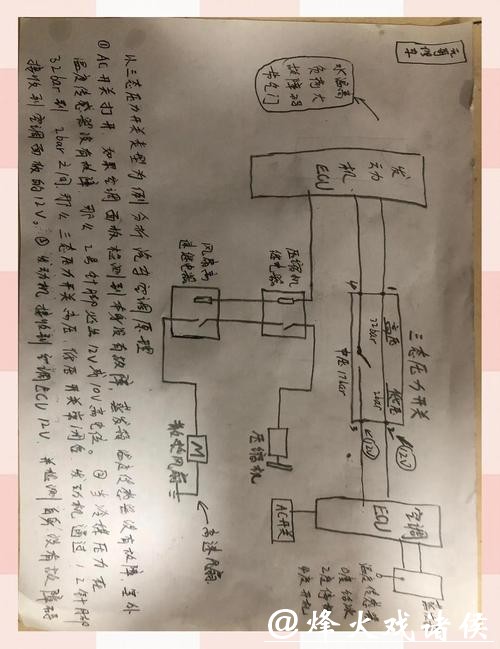 水温高
负荷大
故障码
节气门
发动机
ECU
风扇高
速继电器
压缩机
继电器
三态压力开关
1
高压
32bar
低压
2bar
2
12V
4
中压17bar
3
12V
M
散热风扇
高速风扇
压缩机
AC开关
空调
ECU
温度传感器
0度结冰
2度停机
4度开机
以三态压力开关类型为例 分析汽车空调原理
①AC开关打开 如果空调面板检测到本身没有故障,蒸发箱温度传感器没有故障,室外
温度传感器没有故障 那么2号针脚必出12V或10V高电位。②当冷媒压力在
32bar到2bar之间,那么三态压力开关高压,低压开关常闭合,发动机通过1,2针脚
接收到空调面板的12V。③发动机接收到空调ECU 12V,并检测自身没有故障码
@烽火戏诸侯